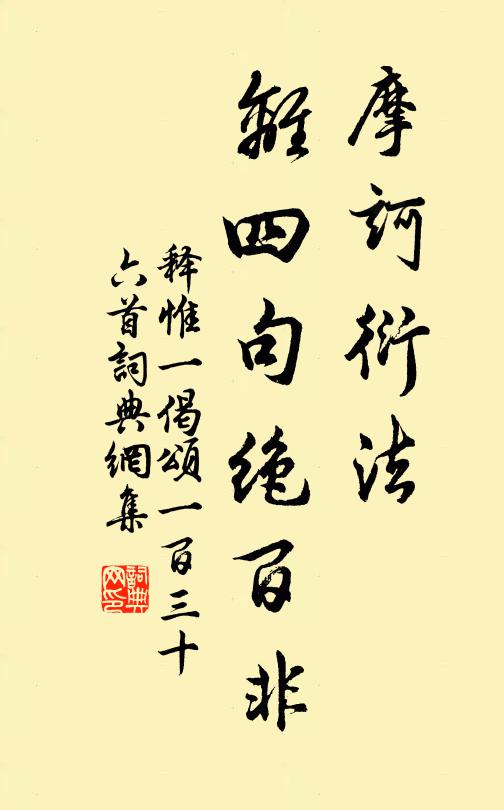 摩訶衍法
離四句絶百非
释惟一偈頌一百三十
六首詞典網集
詞典
网印